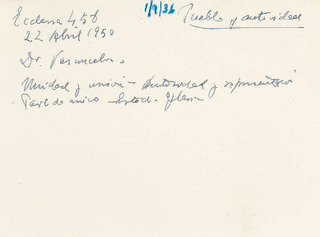 1/9/36
Pueblo y autoridad
Ecclesia 456
22 Abril 1950
Dr. Vasconcelos
Unidad y unión - Autoridad y
Partido único - Estado - Iglesia